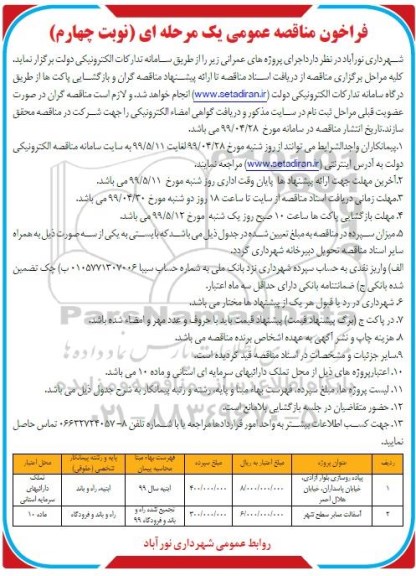 فراخون مناقصه عمومی یک مرحله ای (نوبت چهارم)
شهرداری نورآباد در نظر دارد اجرای پروژه های عمرانی زیر را از طریق سامانه تدارکات الکترونیکی دولت برگزار نماید.
کلیه مراحل برگزاری مناقصه از دریافت اسناد مناقصه تا ارائه پیشنهاد مناقصه گران و بازگشایی پاکت ها از طریق
درگاه سامانه تدارکات الکترونیکی دولت (www.setadiran.ir) انجام خواهد شد. و لازم است مناقصه گران در صورت
عضویت قبلی مراحل ثبت نام در سایت مذکور و دریافت گواهی امضاء الکترونیکی را جهت شرکت در مناقصه محقق
سازند.تاریخ انتشار مناقصه در سامانه مورخ ۹۹/۰۴/۲۸ می باشد.
۱.پیمانکاران واجدالشرایط می توانند از روز شنبه مورخ ۹۹/۰۴/۲۸ لغایت ۹۹/۵/۱۱ به سایت سامانه مناقصه الکترونیکی
دولت به آدرس اینترنتی (www.setadiran.ir) مراجعه نمایند.
۲.آخرین مهلت جهت ارائه پیشنهاد ها پایان وقت اداری روز شنبه مورخ ۹۹/۵/۱۱ می باشد.
۳.مهلت زمانی دریافت اسناد مناقصه از سایت تا ساعت ۱۸ روز دو شنبه مورخ ۹۹/۰۴/۳۰ می باشد.
۴. مهلت بازگشایی پاکت ها ساعت ۱۰ صبح روز یک شنبه مورخ ۹۹/۵/۱۲ می باشد.
۵.میزان سپرده در مناقصه به مبلغ تعیین شده در جدول ذیل می باشد که بایستی به یکی از سه صورت ذیل به همراه
سایر اسناد مناقصه تحویل دبیرخانه شهرداری گردد.
الف) واریز نقدی به حساب سپرده شهرداری نزد بانک ملی به شماره حساب سیبا ۰۱۰۵۷۷۱۳۰۷۰۰۶ ب) چک تضمین
شده بانکی ج) ضمانتنامه بانکی دارای حداقل سه ماه اعتبار.
۶. شهرداری در رد یا قبول هر یک از پیشنهاد ها مختار می باشد.
۷. در پاکت ج (برگ پیشنهاد قیمت) پیشنهاد قیمت باید با حروف و عدد مهر و امضاء شده باشد.
۸. هزینه چاپ و نشر آگهی به عهده اشخاص برنده مناقصه می باشد.
۹.سایر جزئیات و مشخصات در اسناد مناقصه قید گردیده است.
۱۰.اعتبار پروژه های ذیل از محل تملک دارائیهای سرمایه ای استانی و ماده ۱۰ می باشد.
۱۱. لیست پروژه ها، مبلغ سپرده، فهرست بهاء مبنا و پایه، رشته و رتبه پیمانکار به شرح جدول ذیل می باشد.
۱۲. حضور متقاضیان در جلسه بازگشایی بلامانع است.
۱۳. جهت کسب اطلاعات بیشتر به واحد امور قراردادها مراجعه یا با شماره تلفن ۸-۰۶۶۳۲۷۲۴۰۵۷ تماس حاصل
نمایید.
ردیف عنوان پروژه مبلغ اعتبار به ریال مبلغ سپرده فهرست بهاء مبنا محاسبه پیمان پایه و رشته پیمانکار شخص (حقوقی) محل اعتبار
۱ پیاده روسازی بلوار آزادی، خیابان پاسداران، خیابان هلال احمر ۸/۰۰۰/۰۰۰/۰۰۰ ۴۰۰/۰۰۰/۰۰۰ ابنیه سال ۹۹ ابنیه، راه و باند تملک دارائیهای سرمایه استانی
۲ آسفالت معابر سطح شهر ۶/۰۰۰/۰۰۰/۰۰۰ ۳۰۰/۰۰۰/۰۰۰ تجمیع شده راه و باند و فرودگاه ۹۹ راه و باند و فرودگاه ماده ۱۰
روابط عمومی شهرداری نور آباد